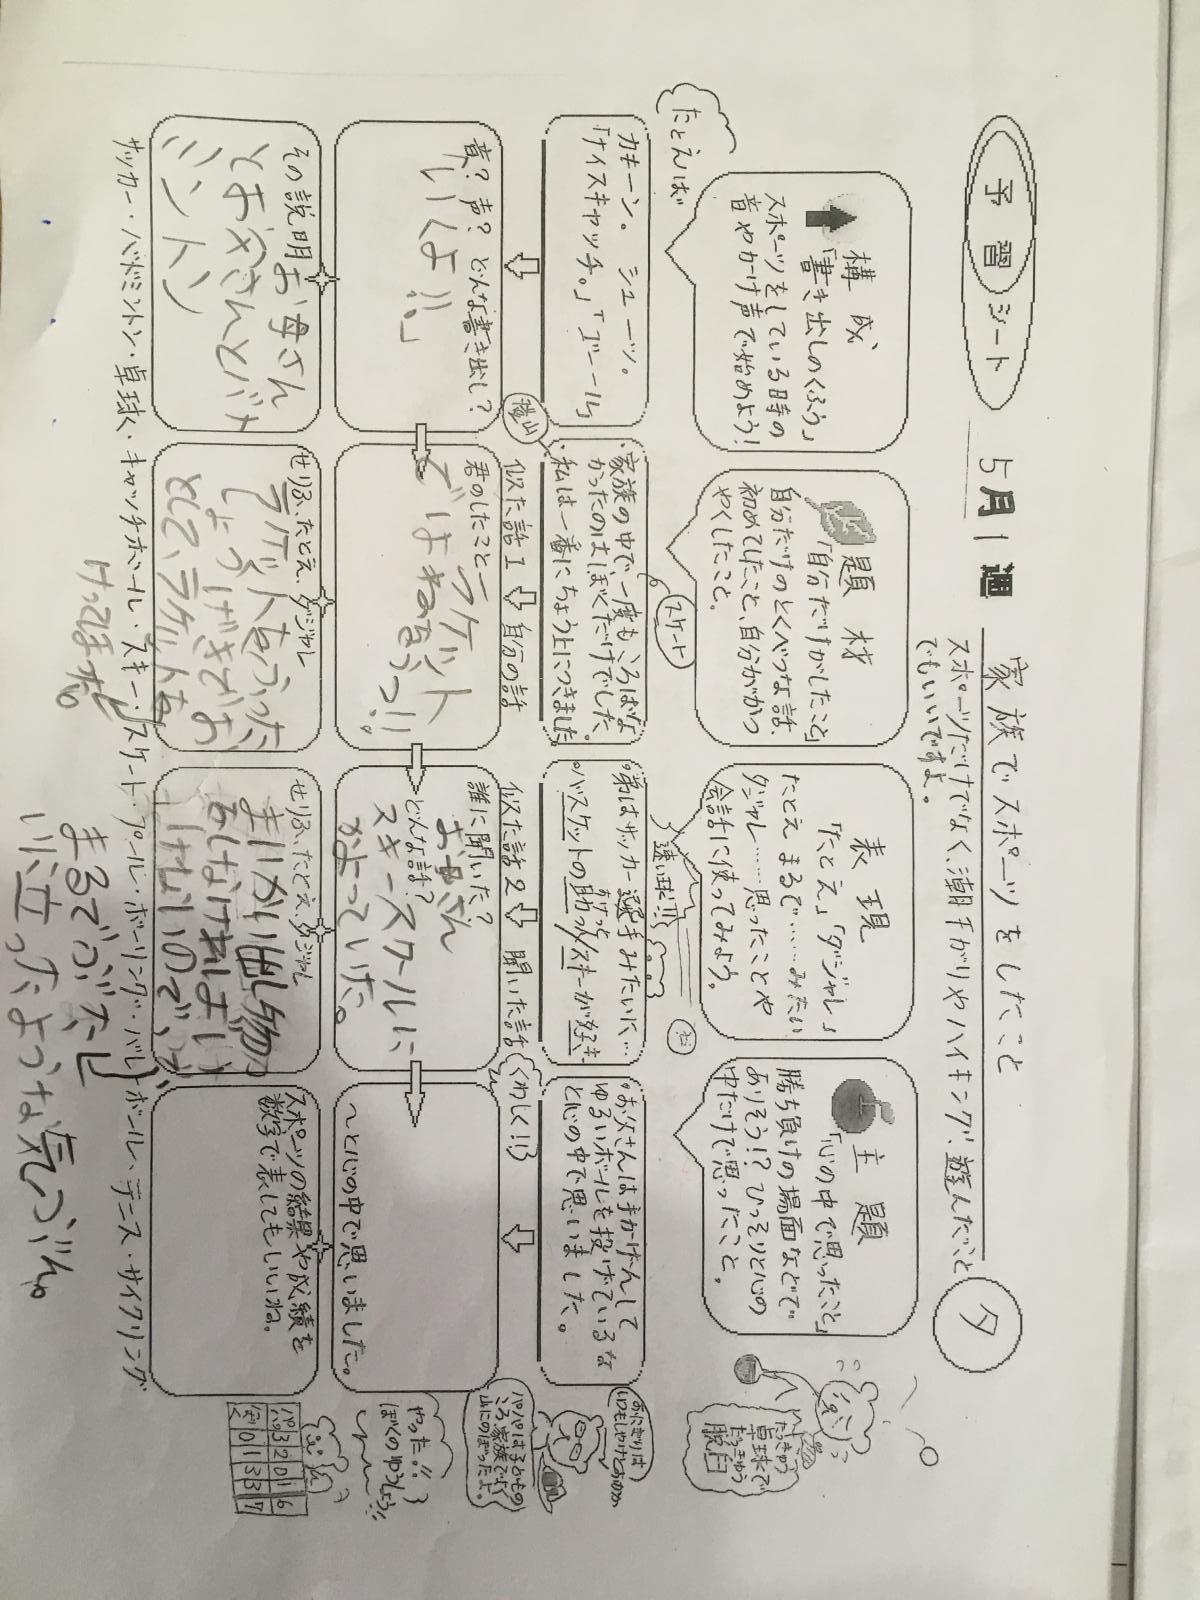 予習シート
5月1週
家族でスポーツをしたこと
スポーツだけでなく、潮干がりやハイキング、遊んだこと
でもいいですよ。
夕
構成
「書き出しのくふう」
スポーツをしている時の
音やかけ声で始めよう!
たとえば
題材
「自分だけがしたこと」
自分だけのとくべつな話、
初めてしたこと、自分がかつ
やくしたこと。
表現
「たとえ」「ダジャレ」
たとえ まるで……みたい
ダジャレ……思ったことや
会話に使ってみよう。
主題
「心の中で思ったこと」
勝ち負けの場面などで
ありそう!?ひっそりと心の
中だけで思ったこと。
カキーン。シューッ。
「ナイスキャッチ。」「ゴール」
・家族の中で、一度もころばな
かったのはぼくだけでした。
・私は一番にちょう上につきました。
スケート
登山
・弟はサッカー選手みたいに…
・バスケットの助っ人スキーが好き
速い球!!
・お父さんは手かげんして
ゆるいボールを投げているな
と心の中で思いました。
音?声?どんな書き出し?
「いくよ!!」
似た話1
自分の話
君のしたこと
ラケット
でよねなうっ!!
似た話2
聞いた話
くわしく!!
誰に聞いた?
どんな話?
お母さん
スキースクールに
かよっていた。
〜と心の中で思いました。
その説明
お母さん
とお父さんとバド
ミントン
せりふ、たとえ、ダジャレ
ラケットをうった
しょうげきでお
として、ラケットを
けってまホ。
せりふ、たとえ、ダジャレ
まいかい出し物
なしなければい
けないので、
まるでぶたし
に立ったような気ぶん。
スポーツの結果や成績を
数字で表してもいいね。
サッカー・バドミントン・卓球・キャッチボール・スキー・スケート・プール・ボーリング・バレーボール、テニス・サイクリング
卓球で
だっきゅう
脱臼
おにぎりは
いつもしゃけとおかか
パパはこどもの
ころ家族でよく
山にのぼったよ。
やった!!
ぼくのゆうしょう!!
パパ 3 2 0 1 6
ぼく 0 1 3 3 7